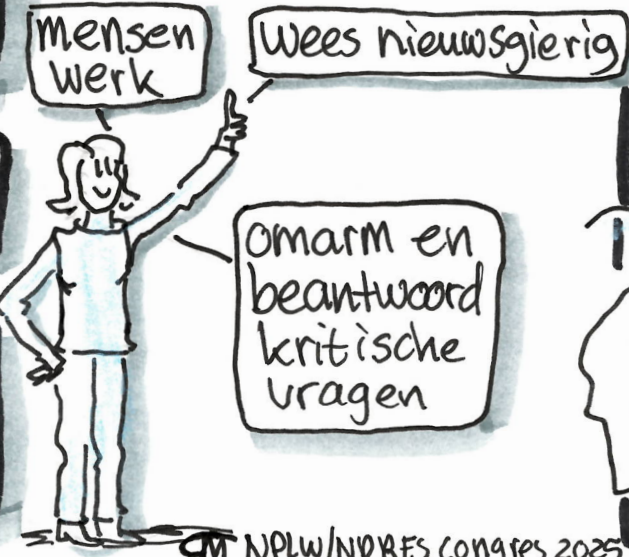 mensen
werk
wees nieuwsgierig
omarm en
beantwoord
kritische
vragen
CM NPLW/NPRES congres 2025